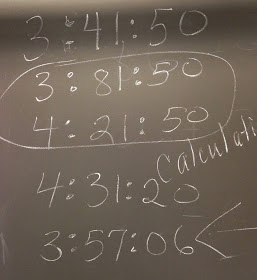 3:41:50
3:81:50
4:21:50
Calculati
4:31:20
3:57:06